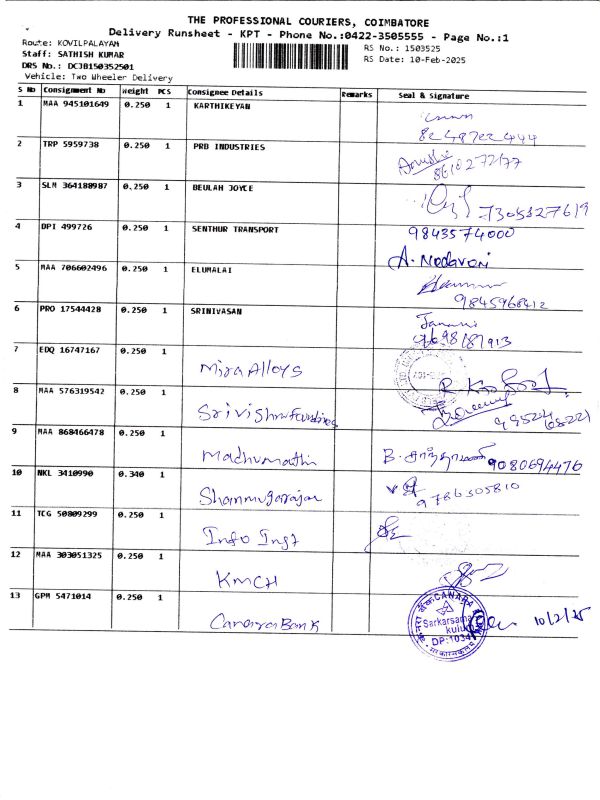 THE PROFESSIONAL COURIERS, COIMBATORE
Delivery Runsheet - KPT - Phone No.:0422-3505555 - Page No.:1
Route: KOVILPALAYAM
RS No.: 1503525
Staff: SATHISH KUMAR
RS Date: 10-Feb-2025
DRS No.: DCJB150352501
Vehicle: Two Wheeler Delivery
S No Consignment No Weight PCS Consignee Details Remarks Seal & Signature
1 MAA 945101649 0.250 1 KARTHIKEYAN
8248722444
2 TRP 5959738 0.250 1 PRB INDUSTRIES
8610272177
3 SLM 364188987 0.250 1 BEULAH JOYCE
7305327619
4 DPI 499726 0.250 1 SENTHUR TRANSPORT 9843574000
A. Nadavoni
5 MAA 706602496 0.250 1 ELUMALAI
9845968412
6 PRO 17544428 0.250 1 SRINIVASAN
7 EDQ 16747167 0.250 1
Mira Alloys
8 MAA 576319542 0.250 1
Srivishnu Foundries
9 MAA 868466478 0.250 1
Madhumathi B. 9080694476
10 NKL 3410990 0.340 1
Shanmugarajan 9786305810
11 TCG 50809299 0.250 1
Info Inst
12 MAA 303051325 0.250 1
KMCH
13 GPM 5471014 0.250 1
Canara Bank
CANARA
Sarkarsama
kulu
DP:1034
10/2/25